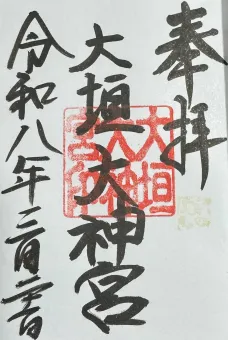 奉拝
大垣大神宮
令和八年三月
大垣
大神
宮印